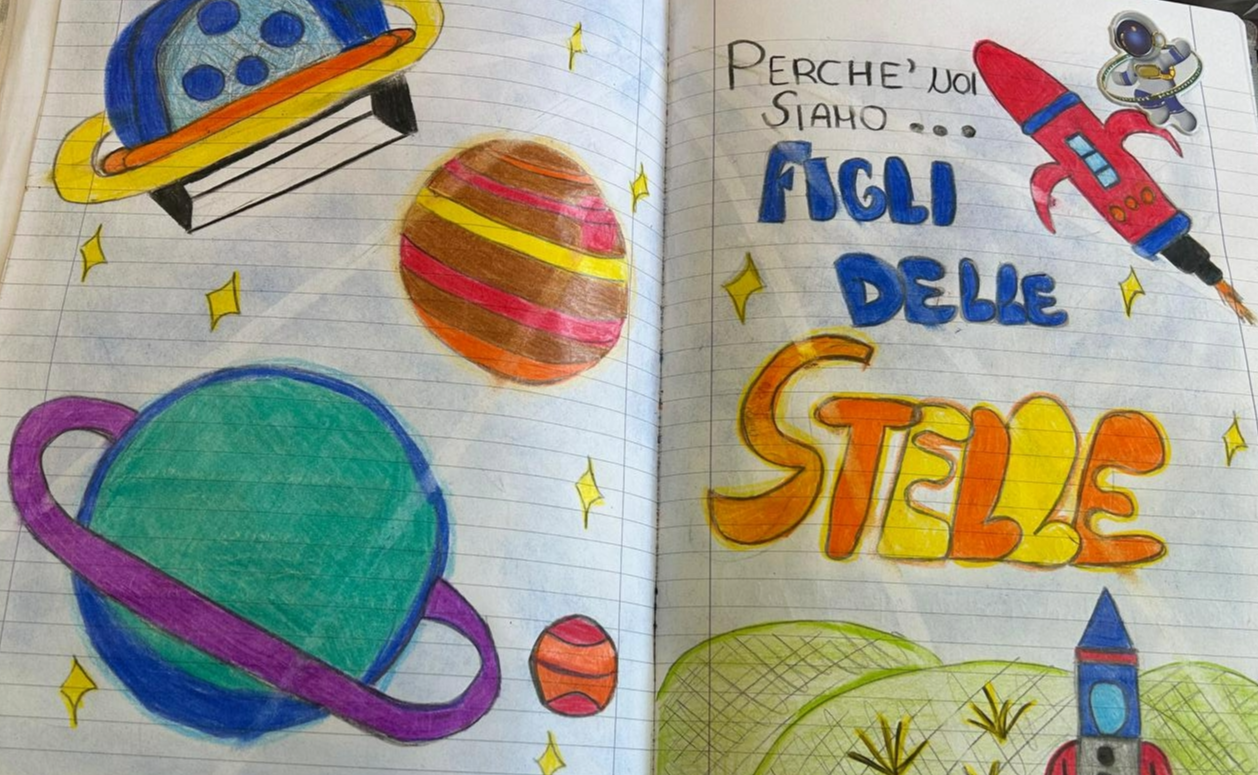 PERCHE' NOI
SIAMO...
FIGLI
DELLE
STELLE